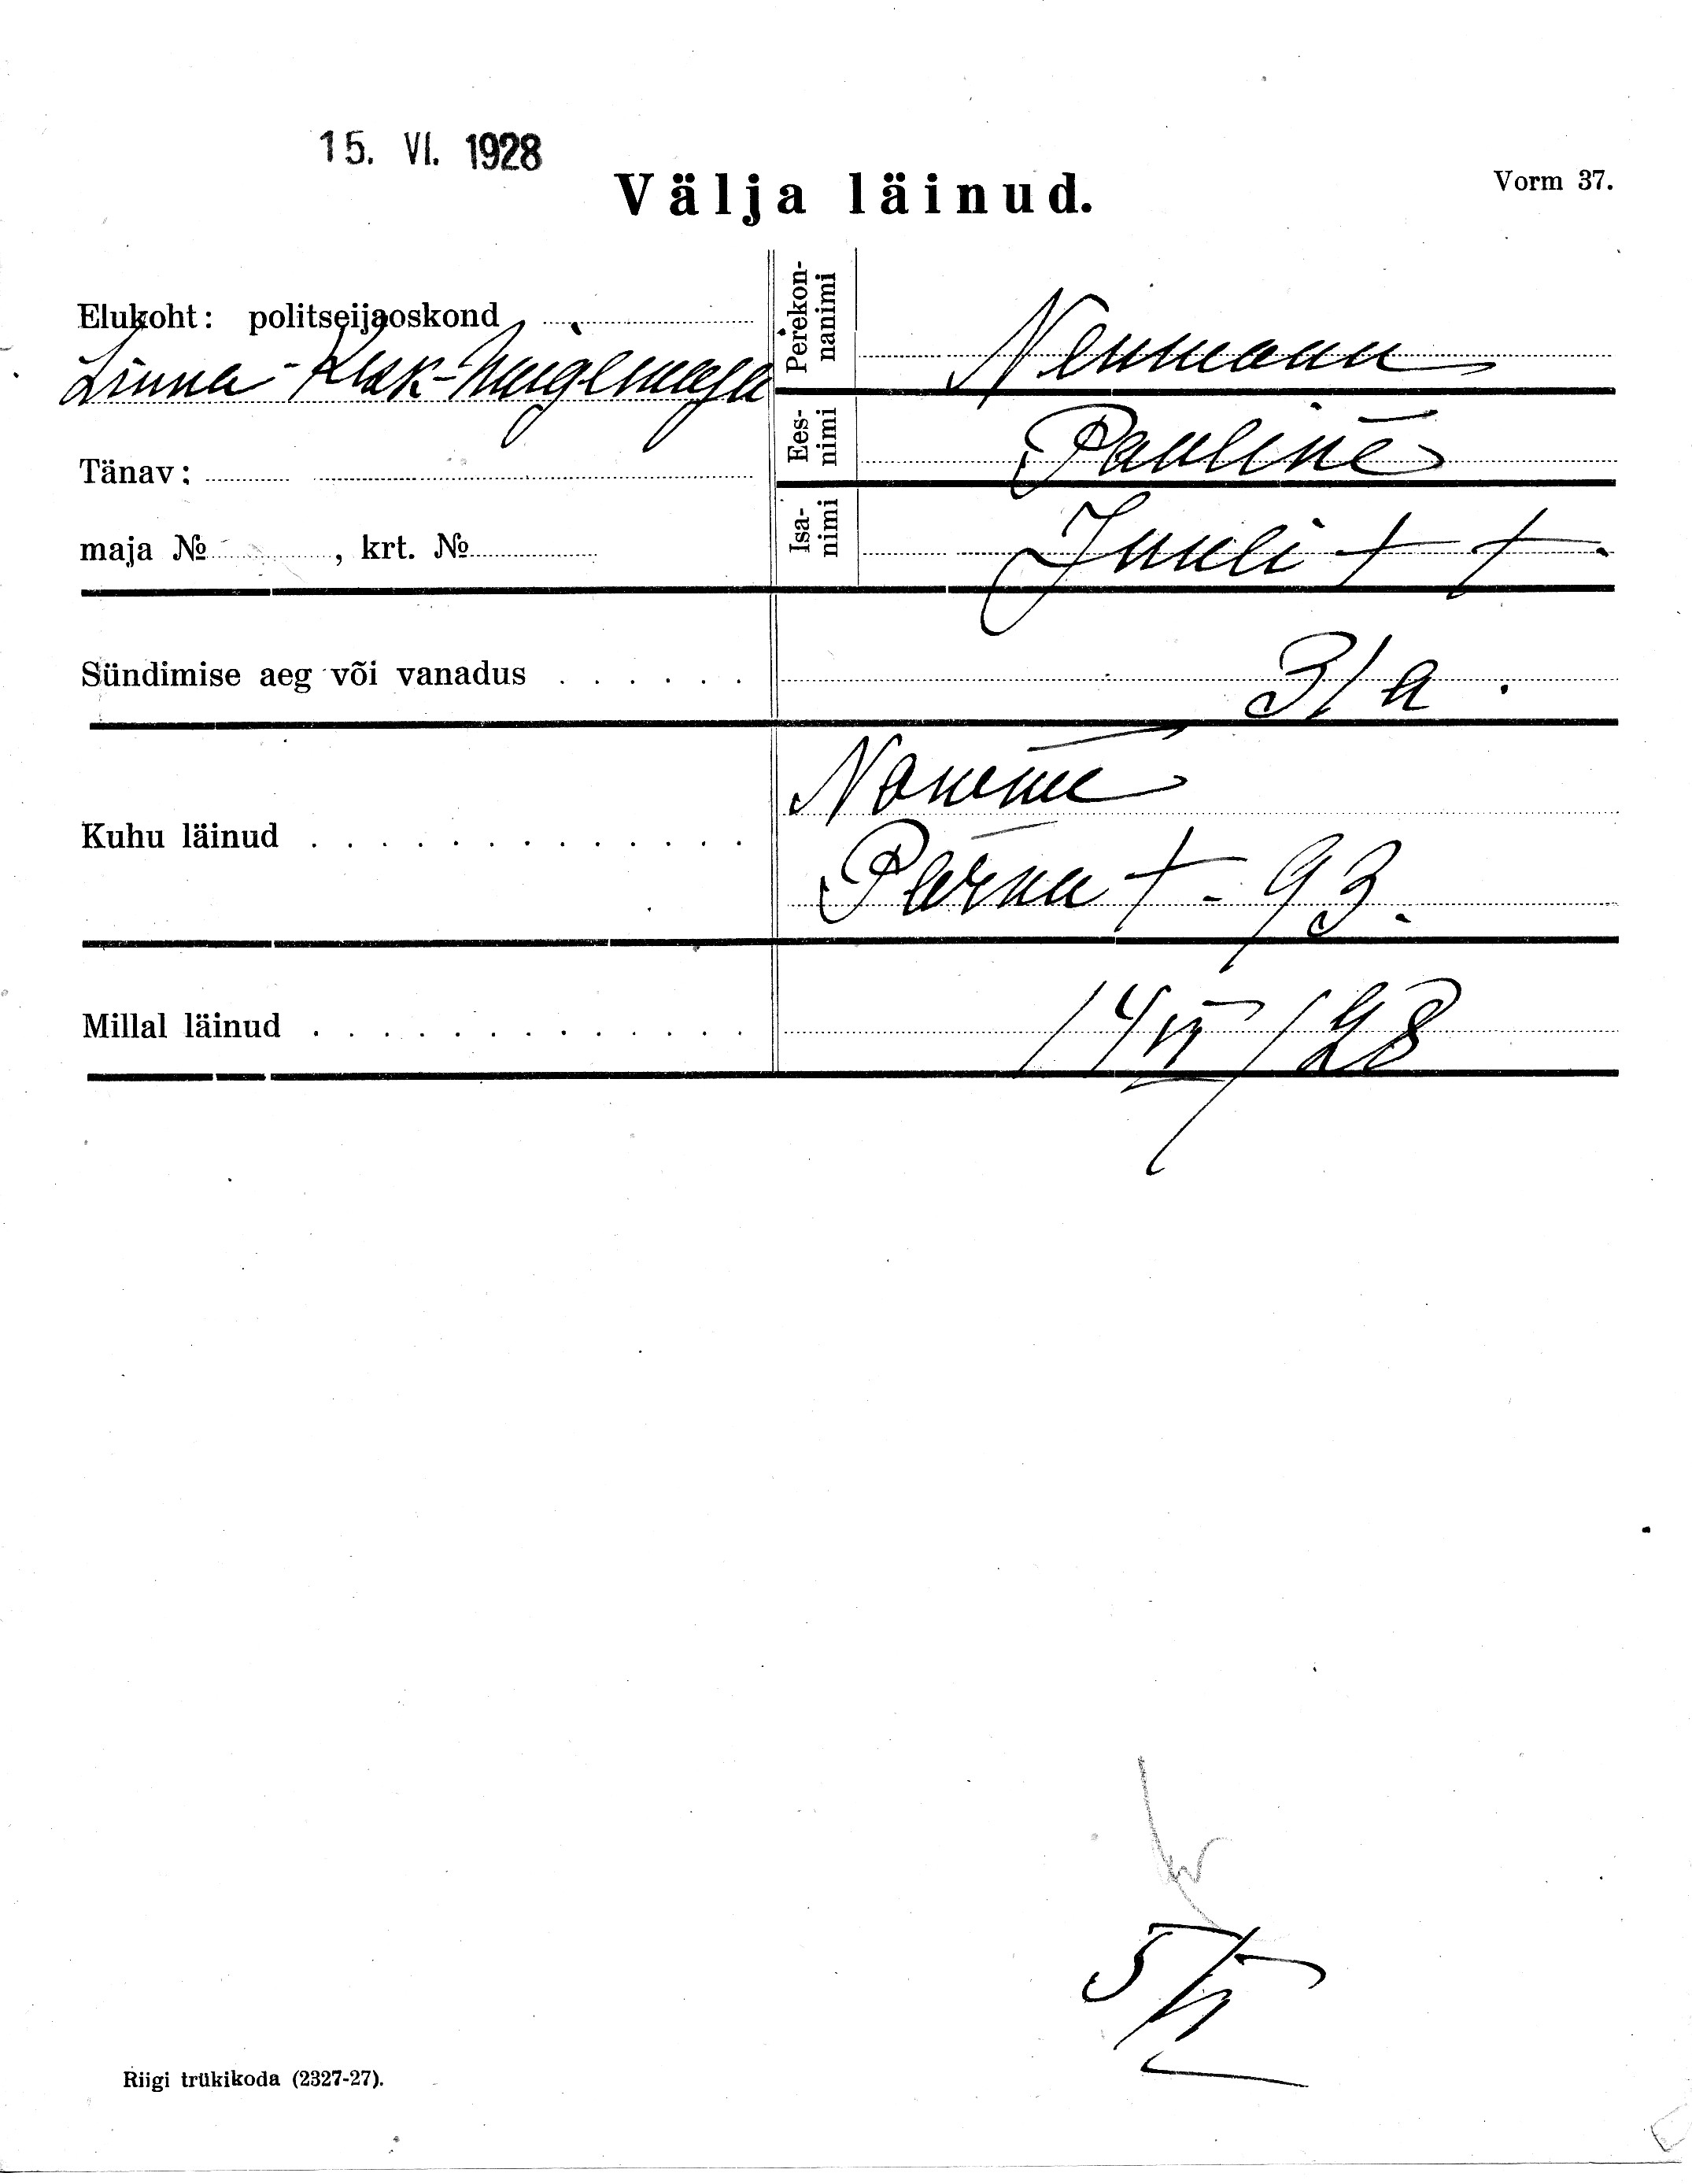 15. VI. 1928
Välja läinud.
Vorm 37.
Elukoht: politseijaoskond
Linna-Kesk-Haigemaja
Tänav:
maja №, krt. №
Perekonnanimi
Neumann
Eesnimi
Pauline
Isanimi
Juuli t t.
Sündimise aeg või vanadus
31 a.
Kuhu läinud
Nõmme
Pärnu t - 93.
Millal läinud
14 VI 28
5/VI
Riigi trükikoda (2327-27).